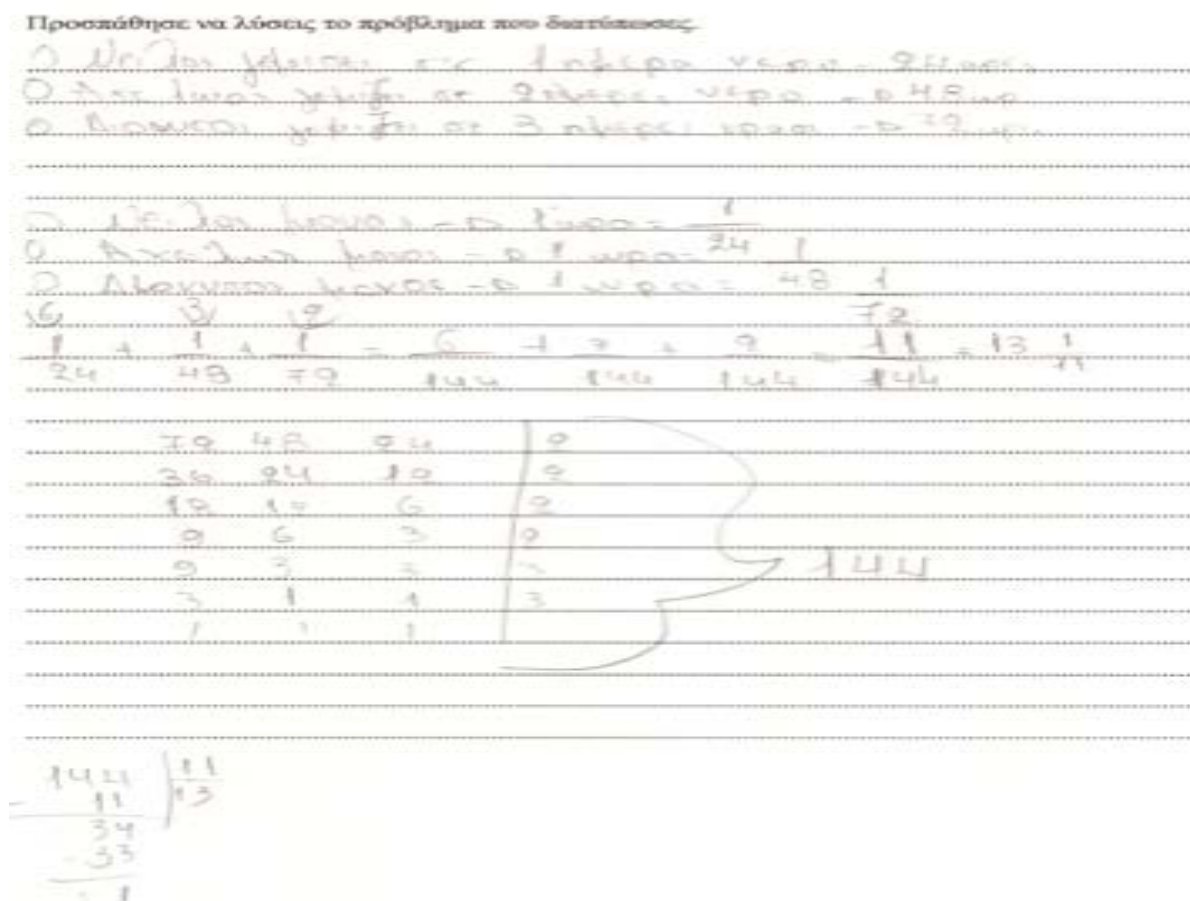 Προσπάθησε να λύσεις το πρόβλημα που διατύπωσες.
Νείλος γεμίζει σε 1 ημέρα νερό - 24 ώρες
γεμίζει σε 2 ημέρες νερό → 48 ώρ
Διόνυσος γεμίζει σε 3 ημέρες κρασί → 72 ώρ.
Νείλος μόνος → 1 ώρα = 1/24
Αχελώος μόνος → 1 ώρα = 1/48
Διόνυσος μόνος → 1 ώρα = 1/72
6 3 2
1/24 + 1/48 + 1/72 = 6/144 + 3/144 + 2/144 = 11/144 = 13 1/11
72 48 24 | 2
36 24 12 | 2
18 12 6 | 2
9 6 3 | 2
9 3 3 | 3
3 1 1 | 3
1 1 1
144
144 | 11
- 11 | 13
34
- 33
1